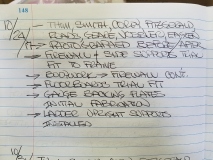 148
10/ → TRIM SMITH, COREY FITZGERALD,
24/ BLAIR, SEALE, WINSLEY, EASTON
17 → PHOTOGRAPHED BEFORE/AFTER
→ FIREWALL & SIDE SUPPORTS TRIAL
FIT TO FRAME
→ BODYWORK → FIREWALL CONT.
→ FLOORBOARDS TRIAL FIT
→ GAUGE BACKING PLATES
INITIAL FABRICATION
→ LADDER UPRIGHT SUPPORTS
INSTALLED
10/